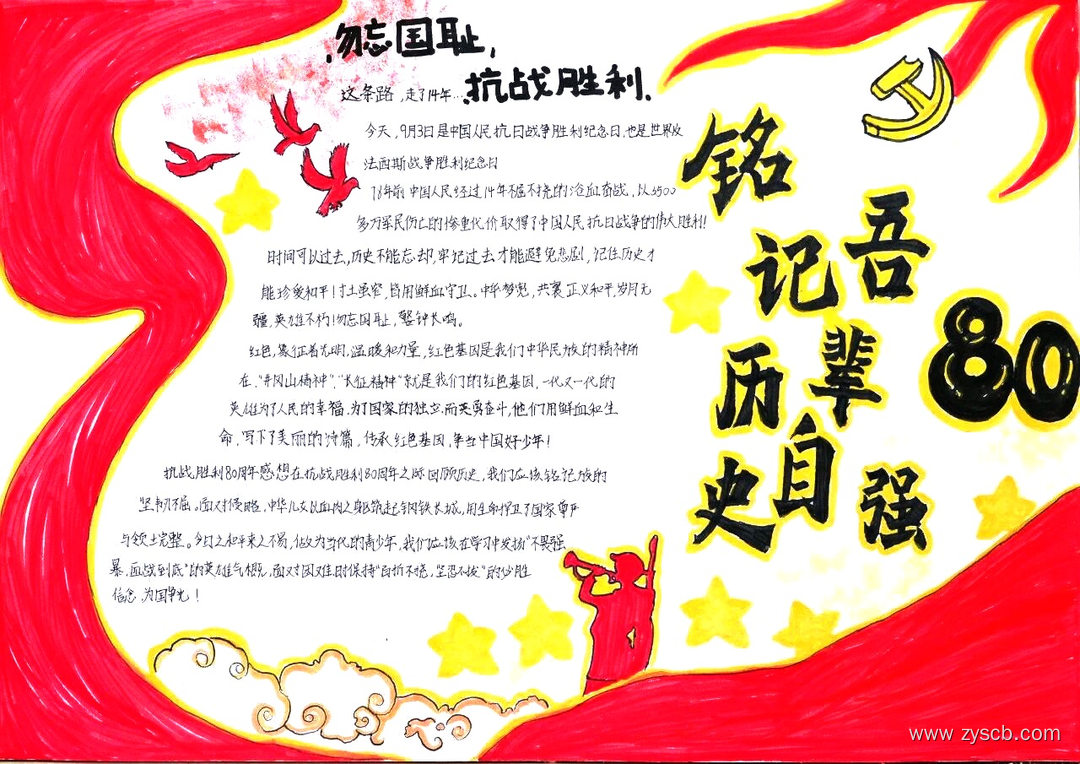 勿忘国耻,
抗战胜利.
这条路,走了14年…
今天,9月3日是中国人民抗日战争胜利纪念日,也是世界反
法西斯战争胜利纪念日
78年前中国人民经过14年不屈不挠的浴血奋战,以3500
多万军民伤亡的惨重代价取得了中国人民抗日战争的伟大胜利!
时间可以过去,历史不能忘却,牢记过去才能避免悲剧,记住历史才
能珍爱和平!寸土虽窄,皆用鲜血守卫。中华梦兴,共襄正义和平,岁月无
疆,英雄不朽!勿忘国耻,警钟长鸣。
红色,象征着光明,温暖和力量,红色基因是我们中华民族的精神所
在、"井冈山精神"、"长征精神"就是我们的红色基因,一代又一代的
英雄为了人民的幸福,为了国家的独立而英勇奋斗,他们用鲜血和生
命,写下了美丽的诗篇,传承红色基因,争当中国好少年!
抗战胜利80周年感想在抗战胜利80周年之际回顾历史,我们应该铭记民族的
坚韧不屈。面对侵略,中华儿女以血肉之躯筑起钢铁长城,用生命捍卫了国家尊严
与领土完整。今日之和平来之不易,做为当代的青少年,我们应该在学习中发扬"不畏强
暴,血战到底"的英雄气概,面对困难时保持"百折不挠,坚忍不拔"的必胜
信念,为国争光!
铭记历史
吾辈自强
80
www.zyscb.com